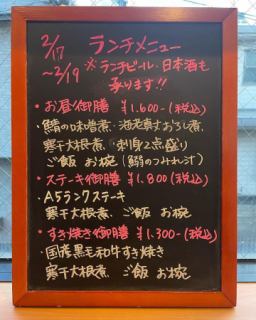 2/17
～2/19
ランチメニュー
※ランチビール・日本酒も
承ります!!
・お昼御膳 ¥1.600-(税込)
・鯖の味噌煮・海老真丈おろし煮
寒干大根煮・刺身2点盛り
ご飯 お椀(鰯のつみれ汁)
・ステーキ御膳 ¥1.800(税込)
・A5ランクステーキ
寒干大根煮、ご飯 お椀
・すき焼き御膳 ¥1.300-(税込)
・国産黒毛和牛すき焼き
寒干大根煮 ご飯 お椀